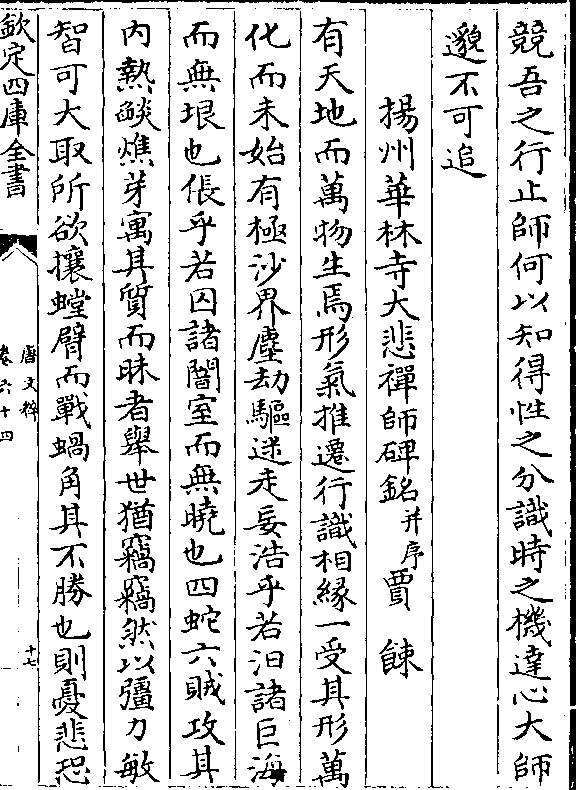 競吾之行止師何以知得性之分識時之機達心大師
邈不可追
揚州華林寺大悲禪師碑銘并序 賈餗
有天地而萬物生焉形氣推遷行識相緣一受其形萬
化而未始有極沙界塵劫驅迷走妄浩乎若汨諸巨海
而無垠也倀乎若囚諸闇室而無曉也四蛇六賊攻其
內熱燄燋芽寓其質而昧者舉世猶竊竊然以彊力敏
智可大取所欲攘螳臂而戰蝸角其不勝也則憂悲恐
欽定四庫全書
唐文粹
卷六十四
十七